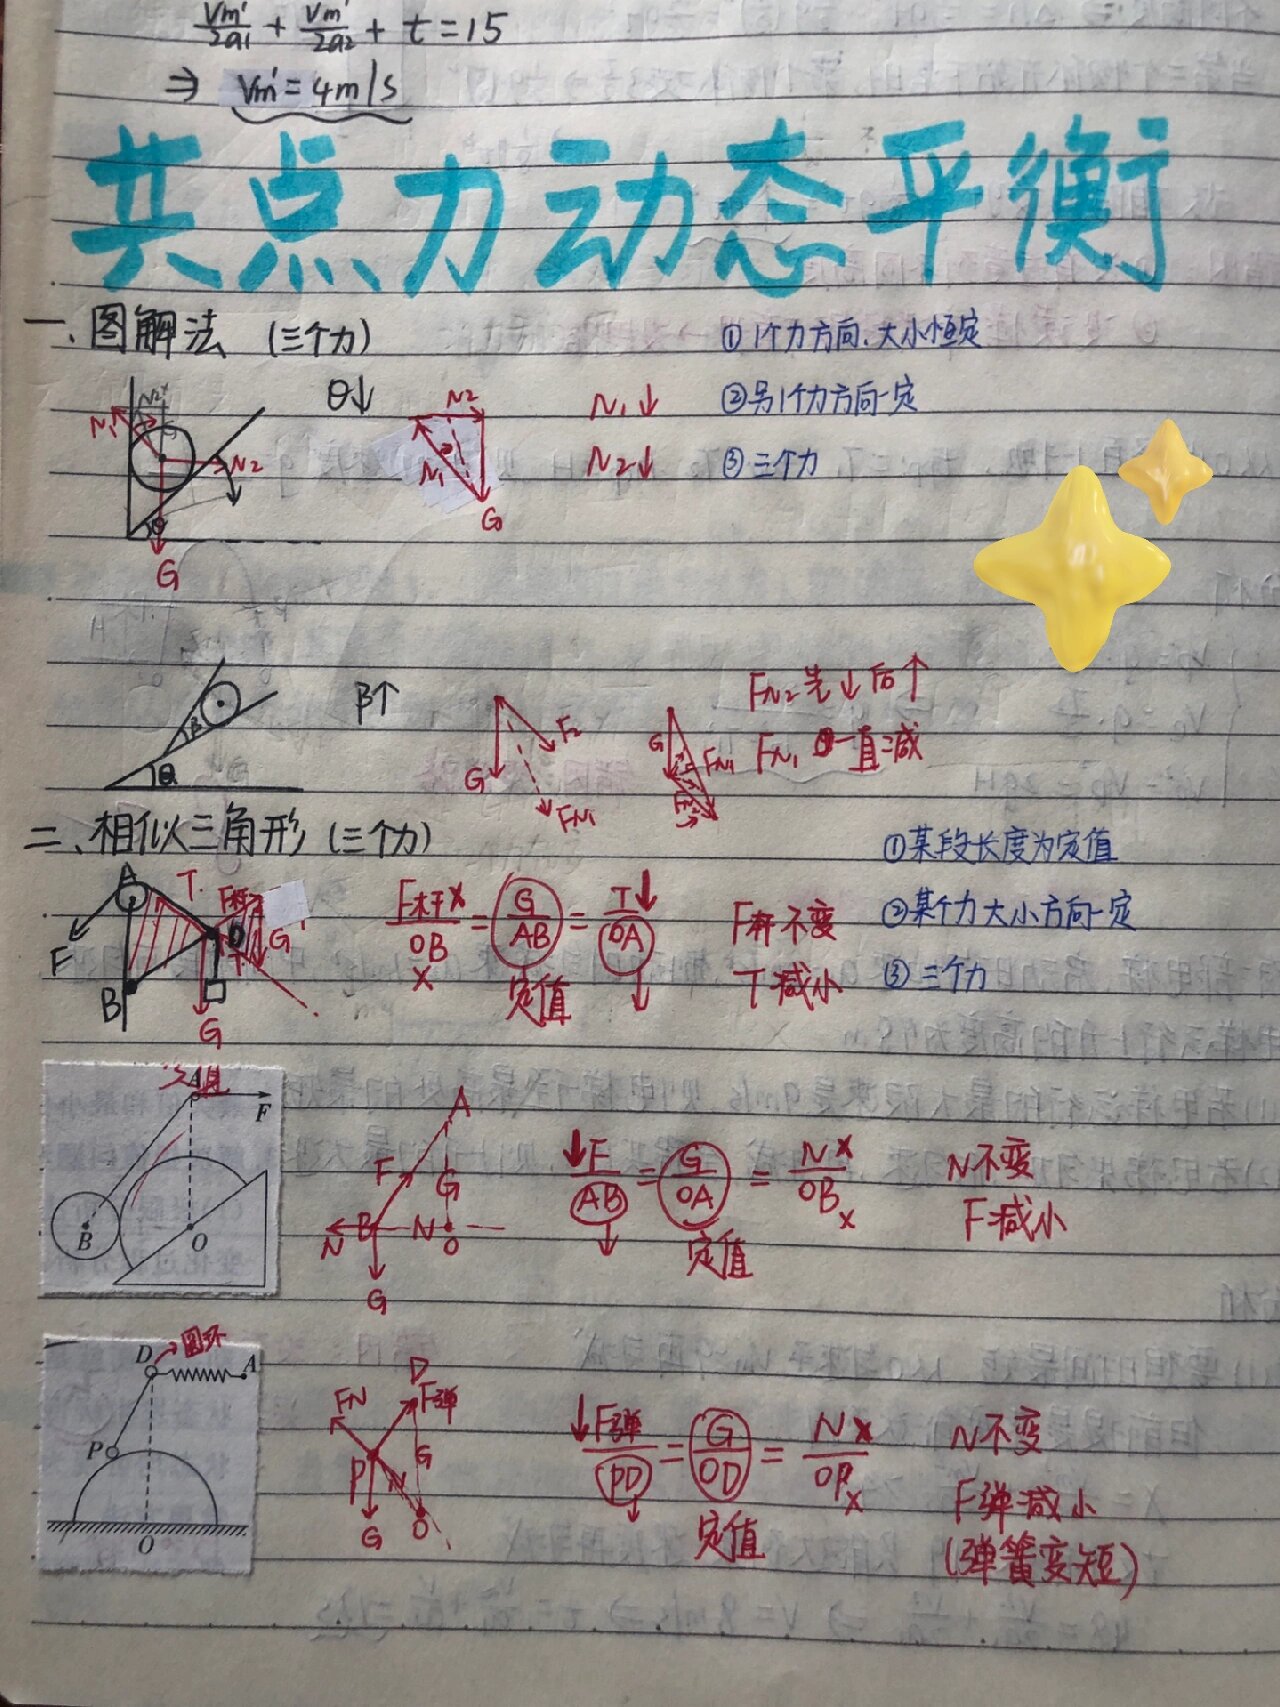 Vm'/2a1 + Vm'/2a2 + t = 15
⇒ Vm' = 4m/s
共点力动态平衡
一、图解法 (三个力) ① 1个力方向、大小恒定
θ↓ N2 N1↓ ②另1个力方向一定
N1 N2 N1 N2↓ ③三个力
θ G
G
β↑ FN2先↓后↑
β F2 G FN1 FN1 一直减
θ G FN1
二、相似三角形 (三个力) ①某段长度为定值
A T F杆 F杆x/OB x = G/AB = T↓/OA↓ F杆不变 ②某个力大小方向一定
F O G' 定值 T减小 ③三个力
B G
A F A
↓F/AB↓ = G/OA = Nx/OBx N不变
F G 定值 F减小
B O N B N O
G
D 圆环 A D
FN F弹 ↓F弹/PD↓ = G/OD = Nx/OPx N不变
P P G N 定值 F弹减小
O G O (弹簧变短)